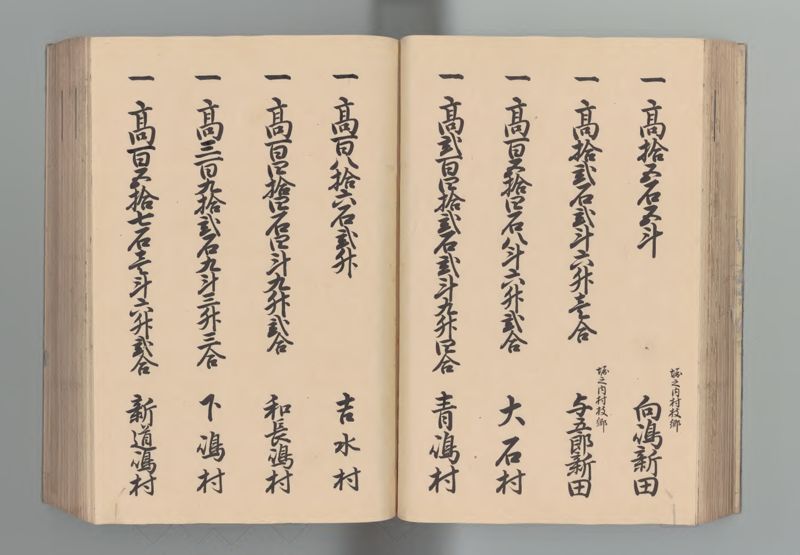 一 高拾五石五斗 堀之内村枝郷 向嶋新田
一 高拾弐石弐斗六升壱合 堀之内村枝郷 与五郎新田
一 高百五拾四石八斗六升弐合 大石村
一 高弐百四拾弐石弐斗九升四合 青嶋村
一 高百八拾六石弐升 吉水村
一 高百四拾四石四斗九升弐合 和長嶋村
一 高三百九拾弐石九斗三升三合 下嶋村
一 高百五拾七石壱斗六升弐合 新道嶋村